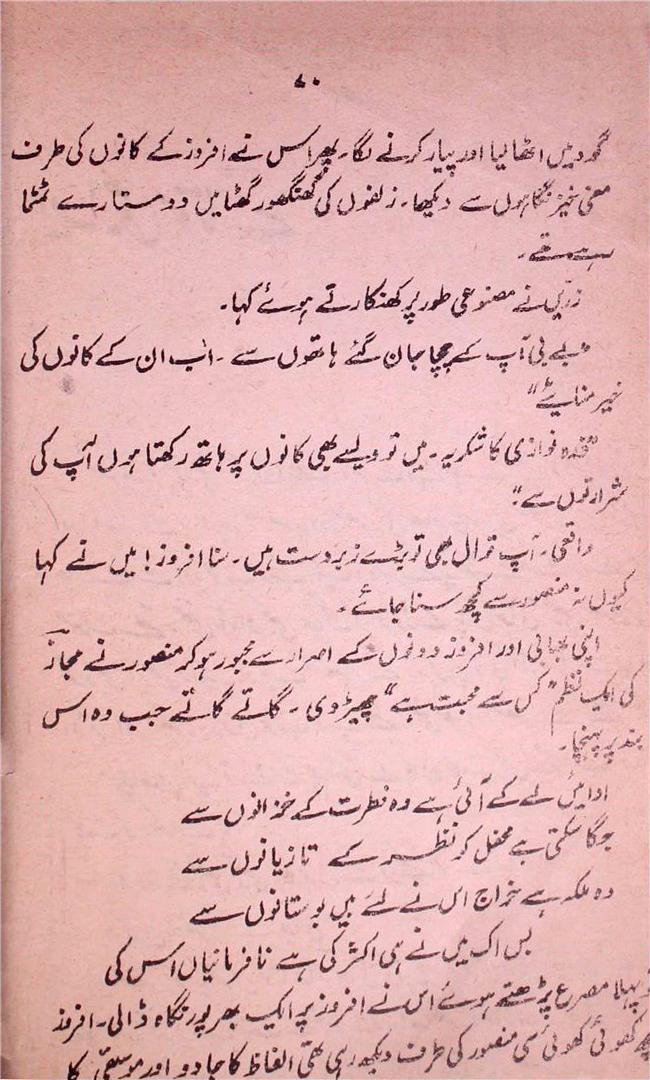 ۷۰
گود میں اٹھا لیا اور پیار کرنے لگا۔ پھر اس نے افروز کے کانوں کی طرف
معنی خیز نگاہوں سے دیکھا۔ زلفوں کی گھنگھور گھٹا میں دو ستارے ٹمٹما
رہے تھے۔
زریں نے مصنوعی طور پر کھنکارتے ہوئے کہا۔
بے بی آپ کے چچا جان گئے ہاتھوں سے۔ اب ان کے کانوں کی
خیر منایئے"
"نوازی کا شکریہ۔ میں تو ویسے بھی کانوں پر ہاتھ رکھتا ہوں آپ کی
شرارتوں سے"۔
واقعی۔ آپ قوال بھی تو بڑے زبردست ہیں۔ سنا افروز! میں نے کہا
کیوں نہ منصور سے کچھ سنا جائے۔
اپنی بھابی اور افروز دونوں کے اصرار سے مجبور ہو کر منصور نے مجازؔ
کی ایک نظم "کس سے محبت ہے" چھیڑ دی۔ گاتے گاتے جب وہ اس
بند پر پہنچا۔
ادائیں لے کے آئی ہے وہ فطرت کے خزانوں سے
جگا سکتی ہے محفل کو نظر کے تازیانوں سے
وہ ملکہ ہے خراج اس نے لئے ہیں بوستانوں سے
بس اک میں نے ہی اکثر کی ہے نافرمانیاں اس کی
پہلا مصرع پڑھتے ہوئے اس نے افروز پر ایک بھرپور نگاہ ڈالی۔ افروز
کچھ کھوئی کھوئی سی منصور کی طرف دیکھ رہی تھی الفاظ کا جادو اور موسیقی کا